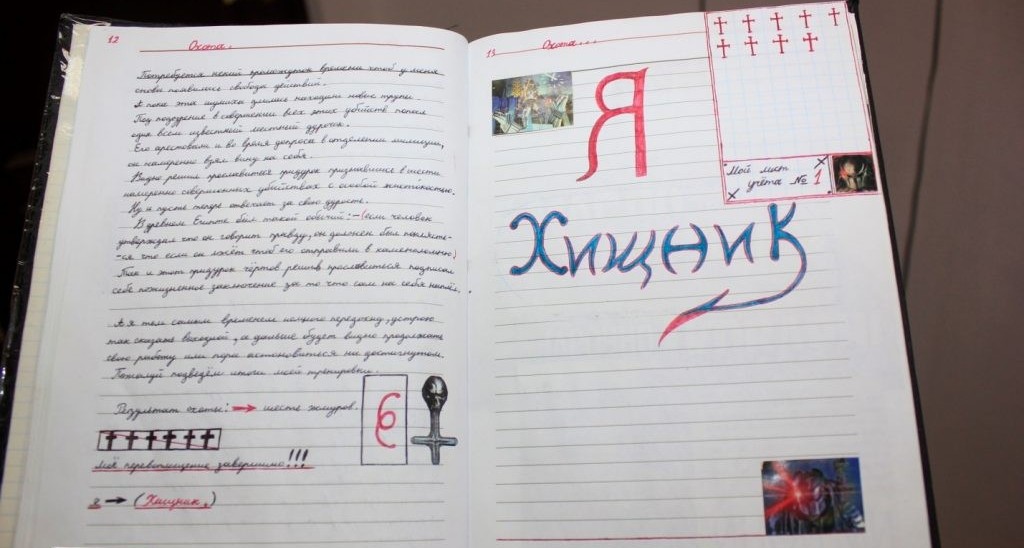 12
Охота.
Потребуется некий промежуток времени чтоб у меня
снова появилась свобода действий.
А пока эта шумиха длилась находили новые трупы.
Под подозрение в совершении всех этих убийств попал
один всем известный местный дурачок.
Его арестовали и во время допроса в отделении милиции,
он намеренно взял вину на себя.
Видно решив прославиться придурок признавшись в шести
намеренно совершённых убийствах с особой жестокостью.
Ну и пусть теперь отвечает за свою дурость.
В древнем Египте был такой обычай: -(если человек
утверждал что он говорит правду, он должен был поклясть-
-ся что если он лжёт чтоб его отправили в каменоломню)
Так и этот придурок чёртов решив прославиться подписал
себе пожизненное заключение за то что сам на себя наплёл.
А я тем самым временем немного передохну, устрою
так сказать выходной, а дальше будет видно продолжать
свою работу или пора остановиться на достигнутом.
Пожалуй подведём итоги моей тренировки.
Результат охоты: → шесть жмуров.
6
Моё перевоплощение завершено!!!
Я → (Хищник.)
13
Охота...
Я
Хищник
Мой лист
учёта № 1